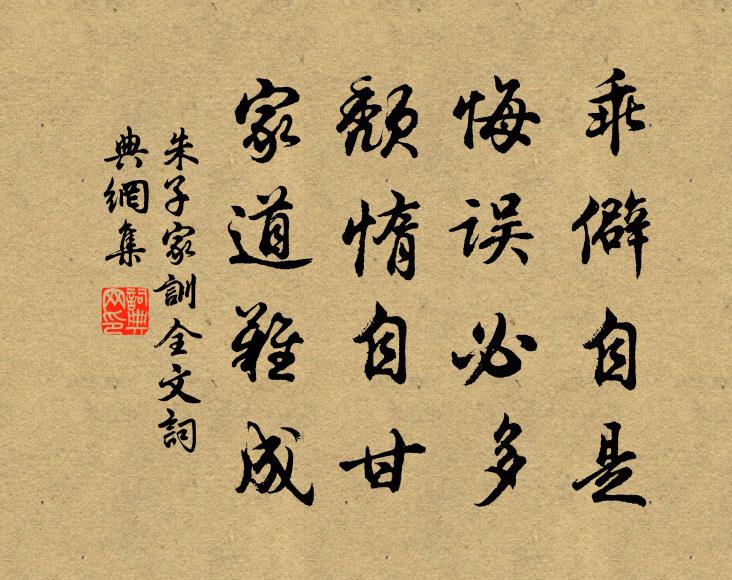 乖僻自是
悔误必多
颓惰自甘
家道难成
朱子家訓全文詞
典網集
詞典网印